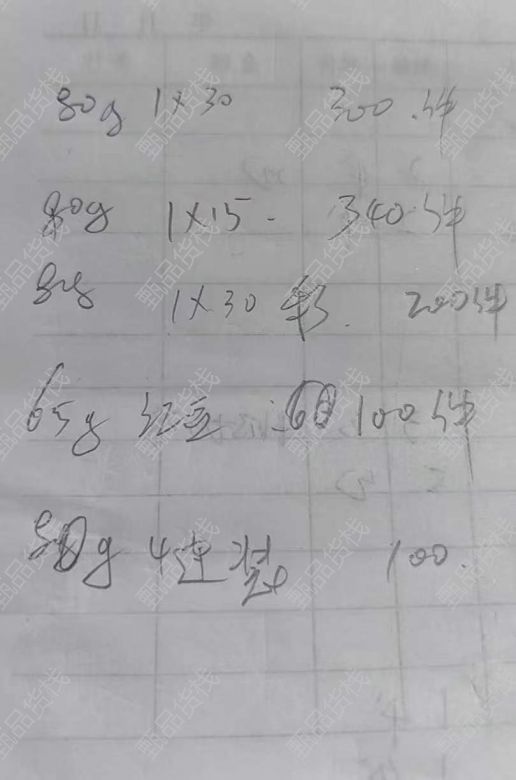 80g 1×30 300件
80g 1×15 340件
80g 1×30 彩 200件
65g 红豆 60 100件
80g 4连 100
甄品货栈